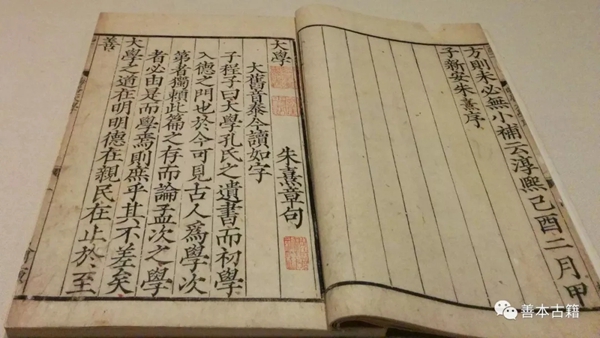 方則未必無小補云淳熙己酉二月甲
子新安朱熹序
大學 朱熹章句
大舊音泰今讀如字
子程子曰大學孔氏之遺書而初學
入德之門也於今可見古人爲學次
第者獨賴此篇之存而論孟次之學
者必由是而學焉則庶乎其不差矣
大學之道在明明德在親民在止於至
善
善本古籍